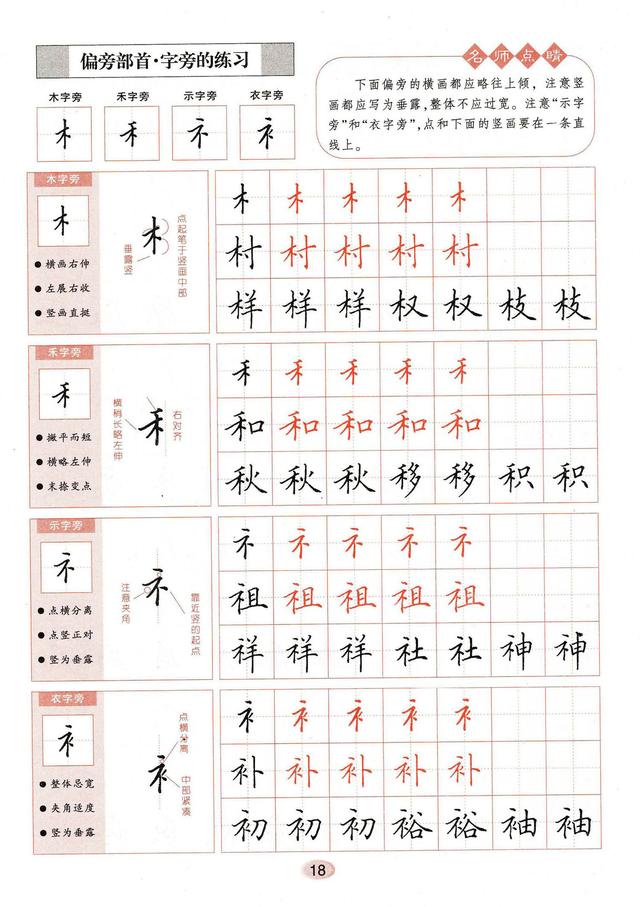 偏旁部首·字旁的练习
名师点睛
下面偏旁的横画都应略往上倾，注意竖
画都应写为垂露，整体不应过宽。注意“示字
旁”和“衣字旁”，点和下面的竖画要在一条直
线上。
木字旁 禾字旁 示字旁 衣字旁
木 禾 礻 衤
木字旁
木
横画右伸
左展右收
竖画直挺
木
点起笔于竖画中部
垂露竖
木 木 木 木 木
村 村 村 村 村
样 样 样 权 权 枝 枝
禾字旁
禾
撇平而短
横略左伸
末捺变点
禾
横稍长略左伸
右对齐
禾 禾 禾 禾 禾
和 和 和 和 和
秋 秋 秋 移 移 积 积
示字旁
礻
点横分离
点竖正对
竖为垂露
礻
注意夹角
靠近竖的起点
礻 礻 礻 礻 礻
祖 祖 祖 祖 祖
祥 祥 祥 社 社 神 神
衣字旁
衤
整体忌宽
夹角适度
竖为垂露
衤
点横分离
中部紧凑
衤 衤 衤 衤 衤
补 补 补 补 补
初 初 初 裕 裕 袖 袖
18